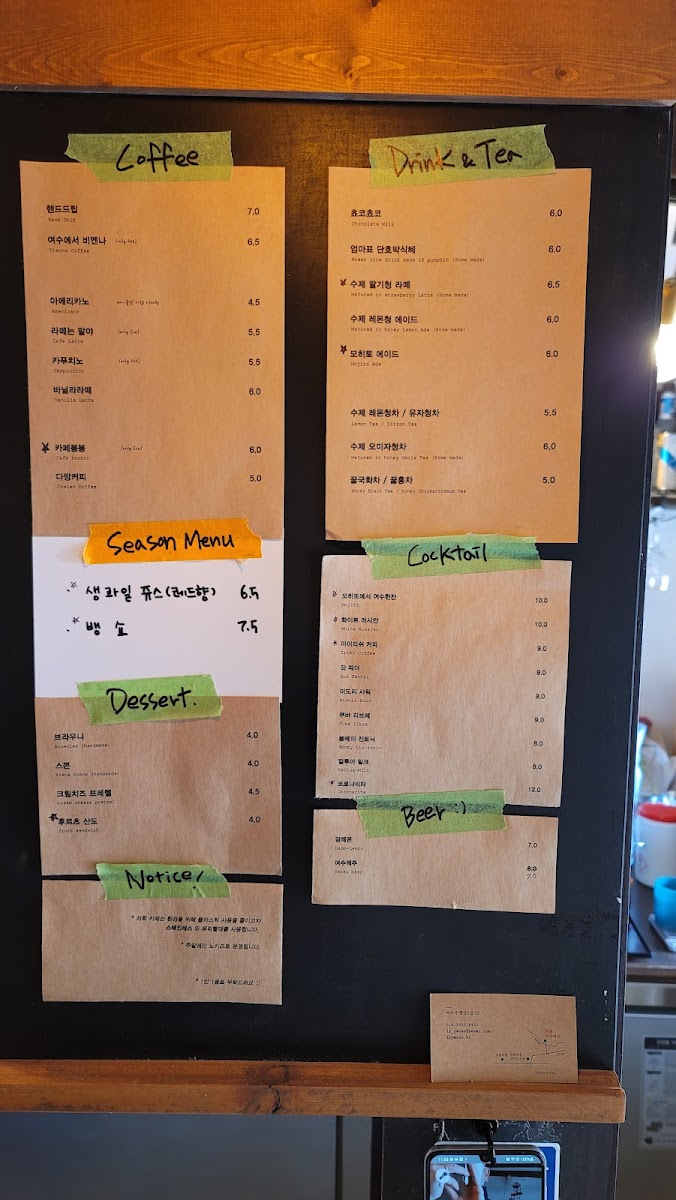 Coffee
핸드드립 7.0
Hand Drip
여수에서 비엔나 (only hot) 6.5
Vienna Coffee
아메리카노 4.5
Americano
라떼는 말야 (only Ice) 5.5
Cafe Latte
카푸치노 (only hot) 5.5
Cappuccino
바닐라라떼 6.0
Vanilla Latte
카페봉봉 (only Ice) 6.0
Cafe bonbon
다방커피 5.0
Instan Coffee
Season Menu
생과일 쥬스(레드향) 6.5
뱅쇼 7.5
Dessert.
브라우니 4.0
Brownies (handmade)
스콘 4.0
크림치즈 프레첼 4.5
Cream cheese pretzel
후르츠 산도 4.0
Fruit sandwich
Notice!
* 저희 카페는 환경을 위해 플라스틱 사용을 줄이고자
스테인레스 와 유리빨대를 사용합니다.
* 주말에만 노키즈로 운영됩니다.
* 1인 1음료 부탁드려요 :)
Drink & Tea
쵸코쵸코 6.0
Chocolate Milk
엄마표 단호박식혜 6.0
Sweet rice drink made of pumpkin (Home made)
수제 딸기청 라떼 6.5
Matured in strawberry Latta (Home made)
수제 레몬청 에이드 6.0
Matured in honey Lemon Ade (Home made)
모히토 에이드 6.0
Mojito Ade
수제 레몬청차 / 유자청차 5.5
Lemon Tea / Citron Tea
수제 오미자청차 6.0
Matured in honey Omija Tea (Home made)
꿀국화차 / 꿀홍차 5.0
Honey Black Tea / honey Chrysanthemum Tea
Cocktail
모히또에서 여수한잔 10.0
Mojito
화이트 러시안 10.0
White Russian
아이리쉬 커피 9.0
Irish Coffee
갓 파더 9.0
God Father
미도리 사워 9.0
Midori Sour
쿠바 리브레 9.0
Cuba libre
봄베이 진토닉 8.0
깔루아 밀크 8.0
Kahlua Milk
코로나리타 12.0
Beer :)
담레몬 7.0
여수맥주 8.0
Yeosu beer 7.0
11:28 100%